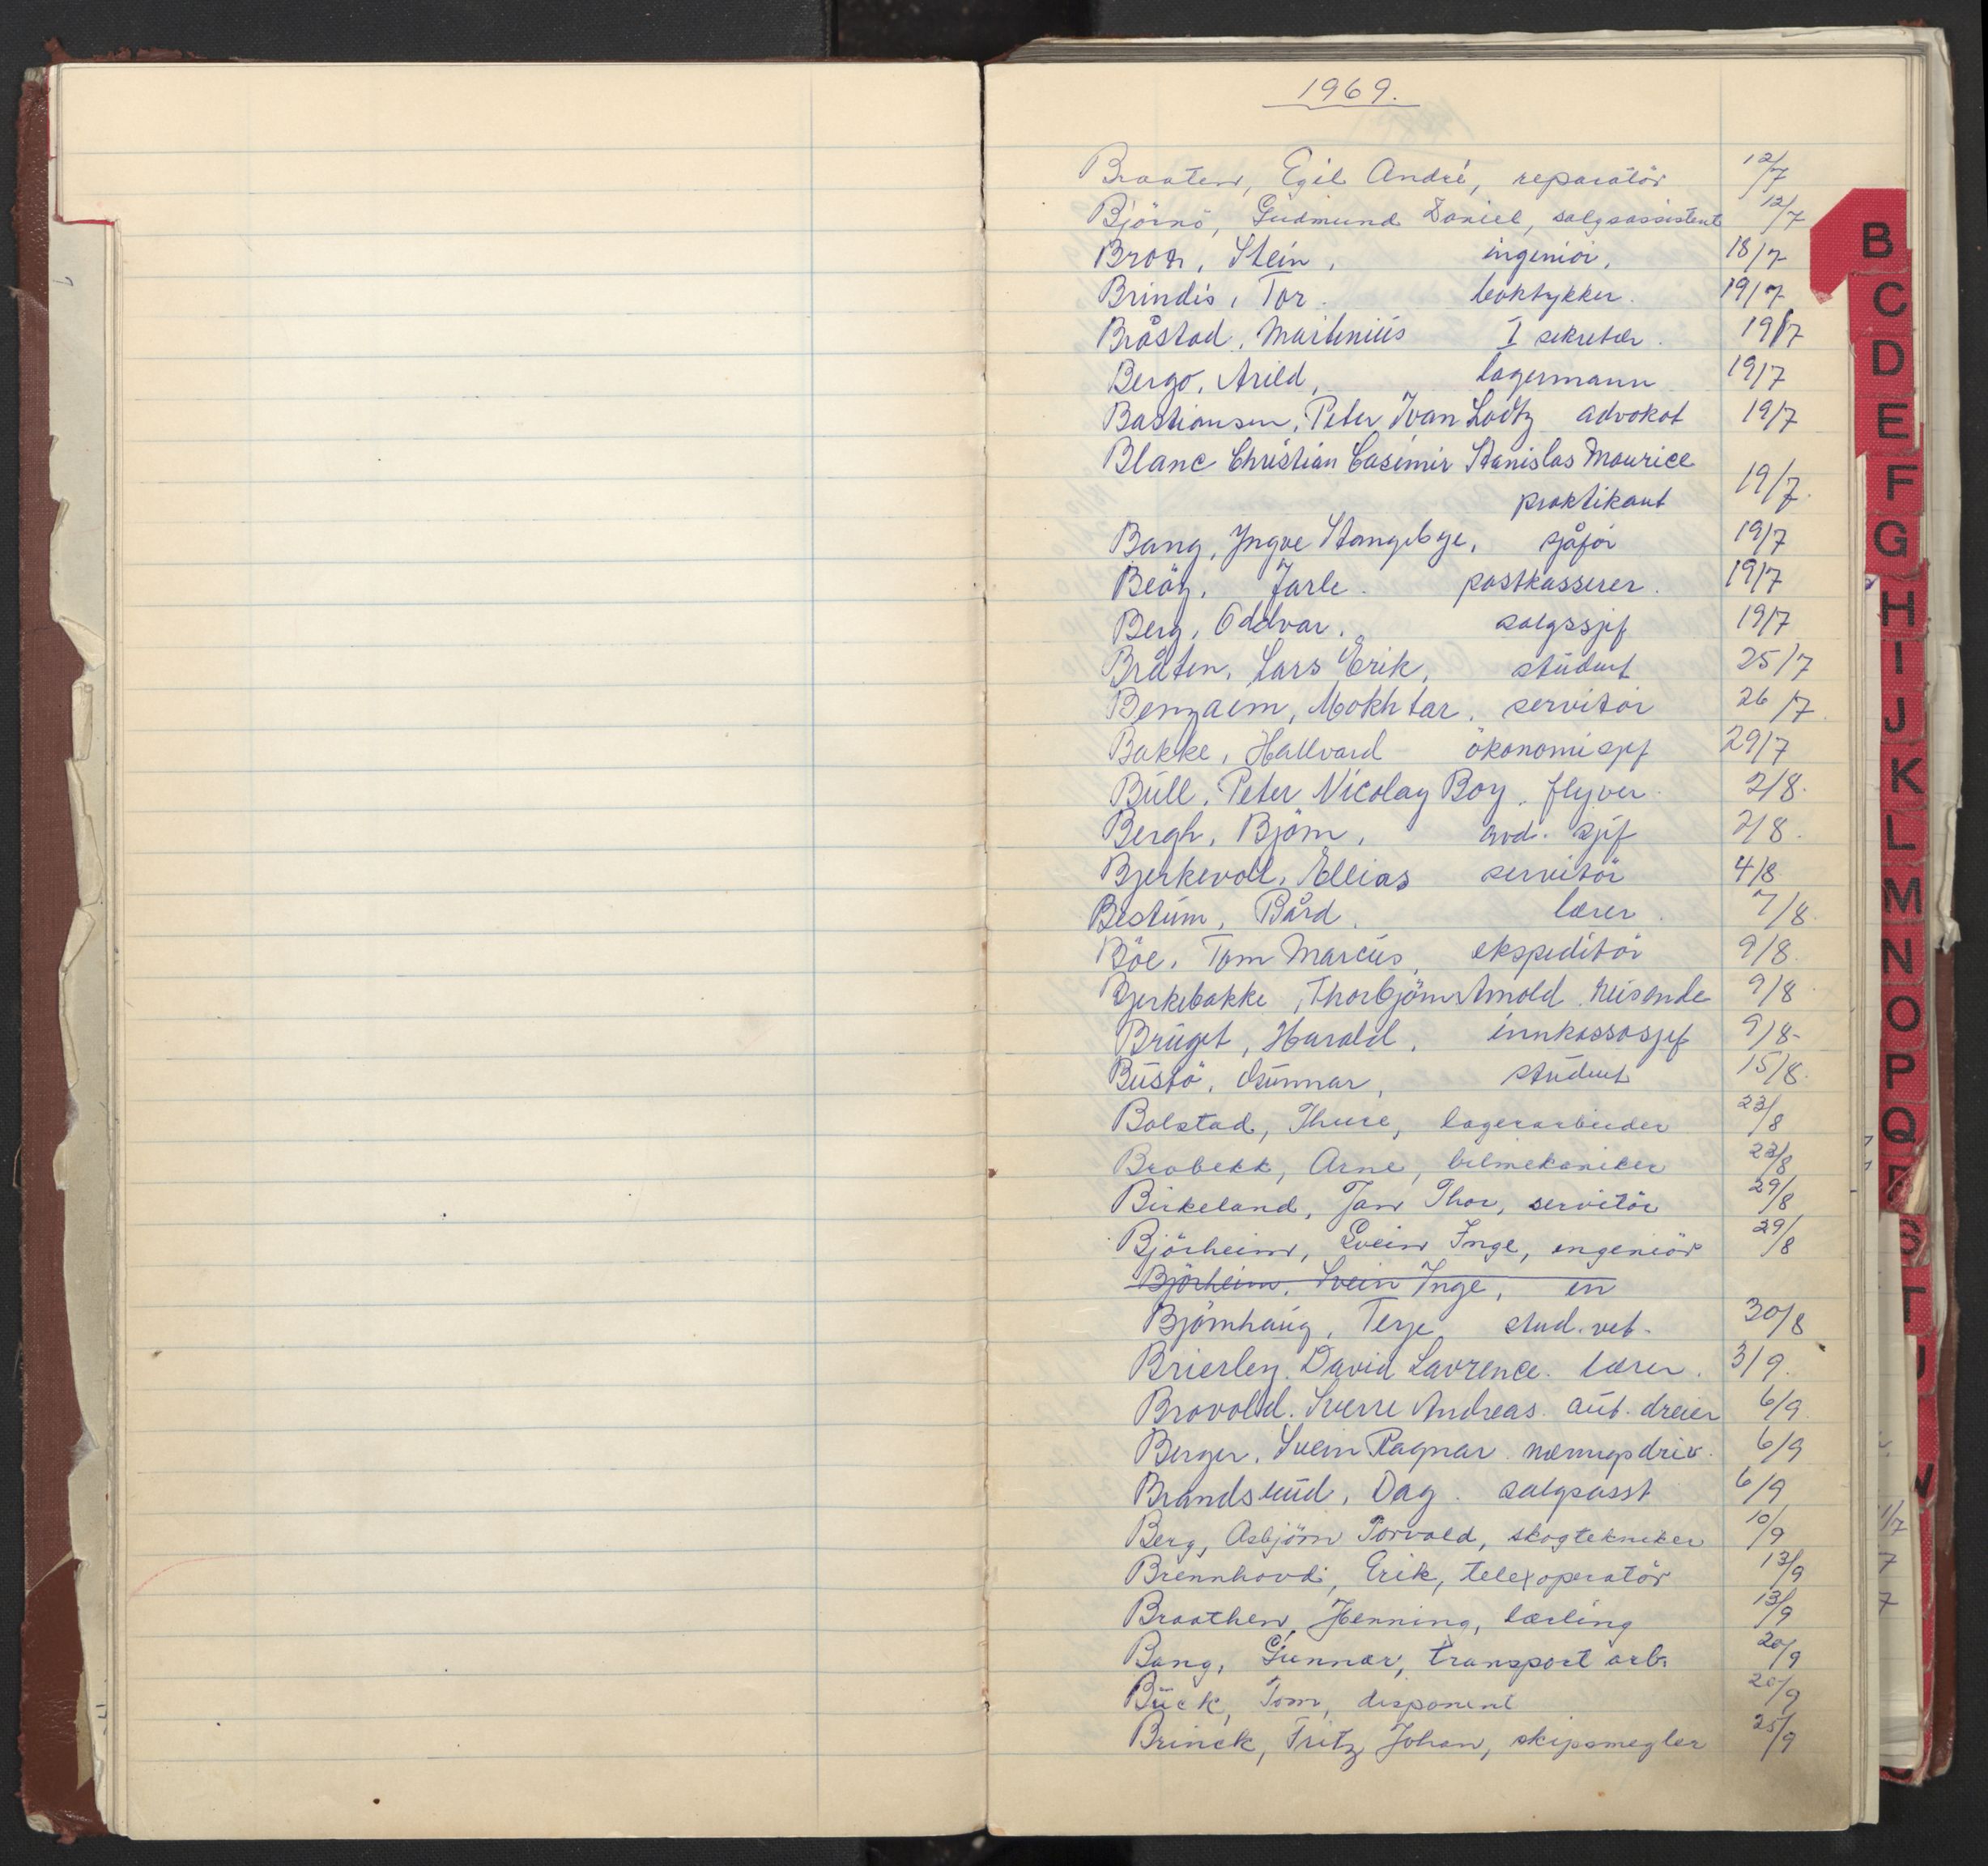 1969.
Braaten, Egil André, reparatör 12/7
Björnö, Gudmund Daniel, salgsassistent 12/7
Stein, ingeniör, 18/7
Brindis, Tor. boktykker. 19/7
Bråstad, Martinius I sekretær. 19/7
Bergo, Arild, lagermann 19/7
Bastiansen, Peter Ivan Lodtz advokat 19/7
Blanc Christian Casimir Stanislas Maurice
praktikant 19/7.
Bang, Yngve Stangebye, sjåför 19/7
Jarle. postkasserer. 19/7
Berg, Oddvar, salgssjef 19/7
Bråten, Lars Erik, student 25/7
Benzaem, Mokhtar. servitör 26/7
Bakke, Hallvard ökonomisjef 29/7
Bull, Peter Nicolay Boy, flyver. 2/8.
Bergh, Björn, avd. sjef 2/8.
Bjerkevoll, Ellias servitör 4/8
Bestum, Bård, lærer. 7/8.
Böe, Tom Marcus, ekspeditör 9/8.
Bjerkebakke, Thorbjörn Arnold reisende 9/8
Bruget, Harald, innkassosjef 9/8-
Bustö, Gunnar, student 15/8.
Bolstad, Thure, lagerarbeider 23/8
Brobekk, Arne, bilmekaniker 23/8
Birkeland, Jan Thor, servitör 29/8
Björheim, Svein Inge, ingeniör 29/8
Björheim, Svein Inge, en
Björnhaug, Terje stud. vet. 30/8
Brierley, David Lavrence. lærer. 3/9.
Brovold. Sverre Andreas. aut. dreier 6/9.
Berger, Svein Ragnar næringsdriv. 6/9
Brandslud, Dag. salgsasst 6/9
Berg, Asbjörn Torvald, skogtekniker 10/9
Brennhovd, Erik, telexoperatör 13/9
Braathen, Henning, lærling 13/9
Bang, Gunnar, transport arb. 20/9
Bück, Tom, disponent 20/9
Brinck, Fritz Johan, skipsmegler 25/9
B
C
D
E
F
G
H
I
J
K
L
M
N
O
P
Q
R
S
T